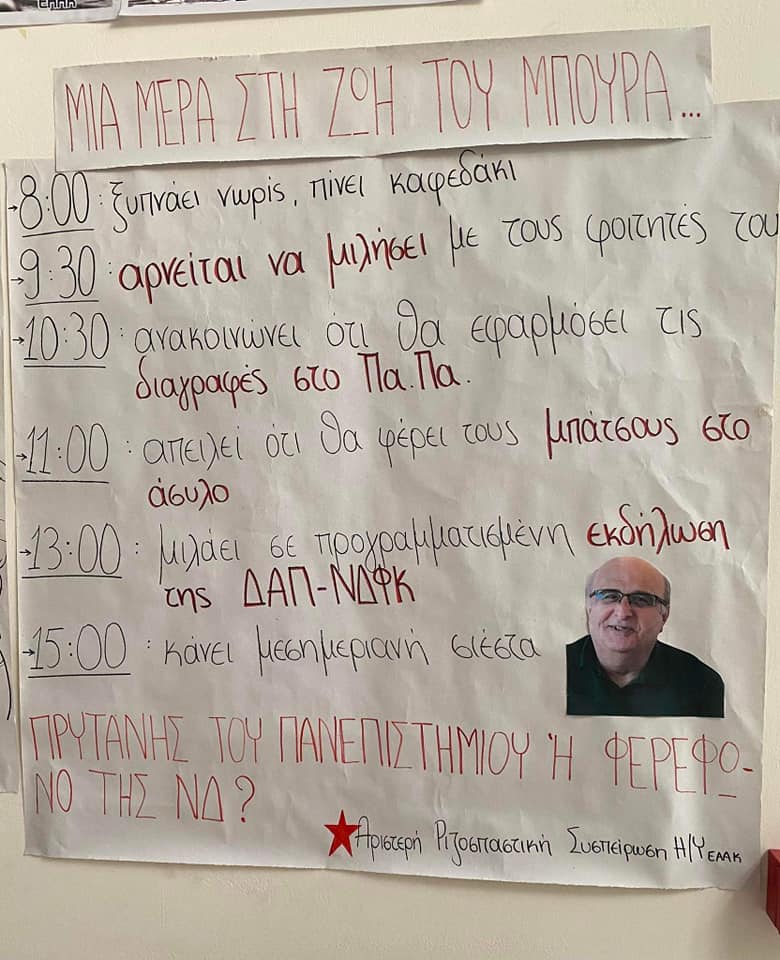 ΜΙΑ ΜΕΡΑ ΣΤΗ ΖΩΗ ΤΟΥ ΜΠΟΥΡΑ...
→8:00: ξυπνάει νωρίς, πίνει καφεδάκι
→9:30: αρνείται να μιλήσει με τους φοιτητές του
→10:30: ανακοινώνει ότι θα εφαρμόσει τις
διαγραφές στο Πα.Πα.
→11:00: απειλεί ότι θα φέρει τους μπάτσους στο
άσυλο
→13:00: μιλάει σε προγραμματισμένη εκδήλωση
της ΔΑΠ-ΝΔΦΚ
→15:00: κάνει μεσημεριανή σιέστα
ΠΡΥΤΑΝΗΣ ΤΟΥ ΠΑΝΕΠΙΣΤΗΜΙΟΥ Ή ΦΕΡΕΦΩ-
ΝΟ ΤΗΣ ΝΔ?
★Αριστερή Ριζοσπαστική Συσπείρωση Η/Υ ΕΑΑΚ